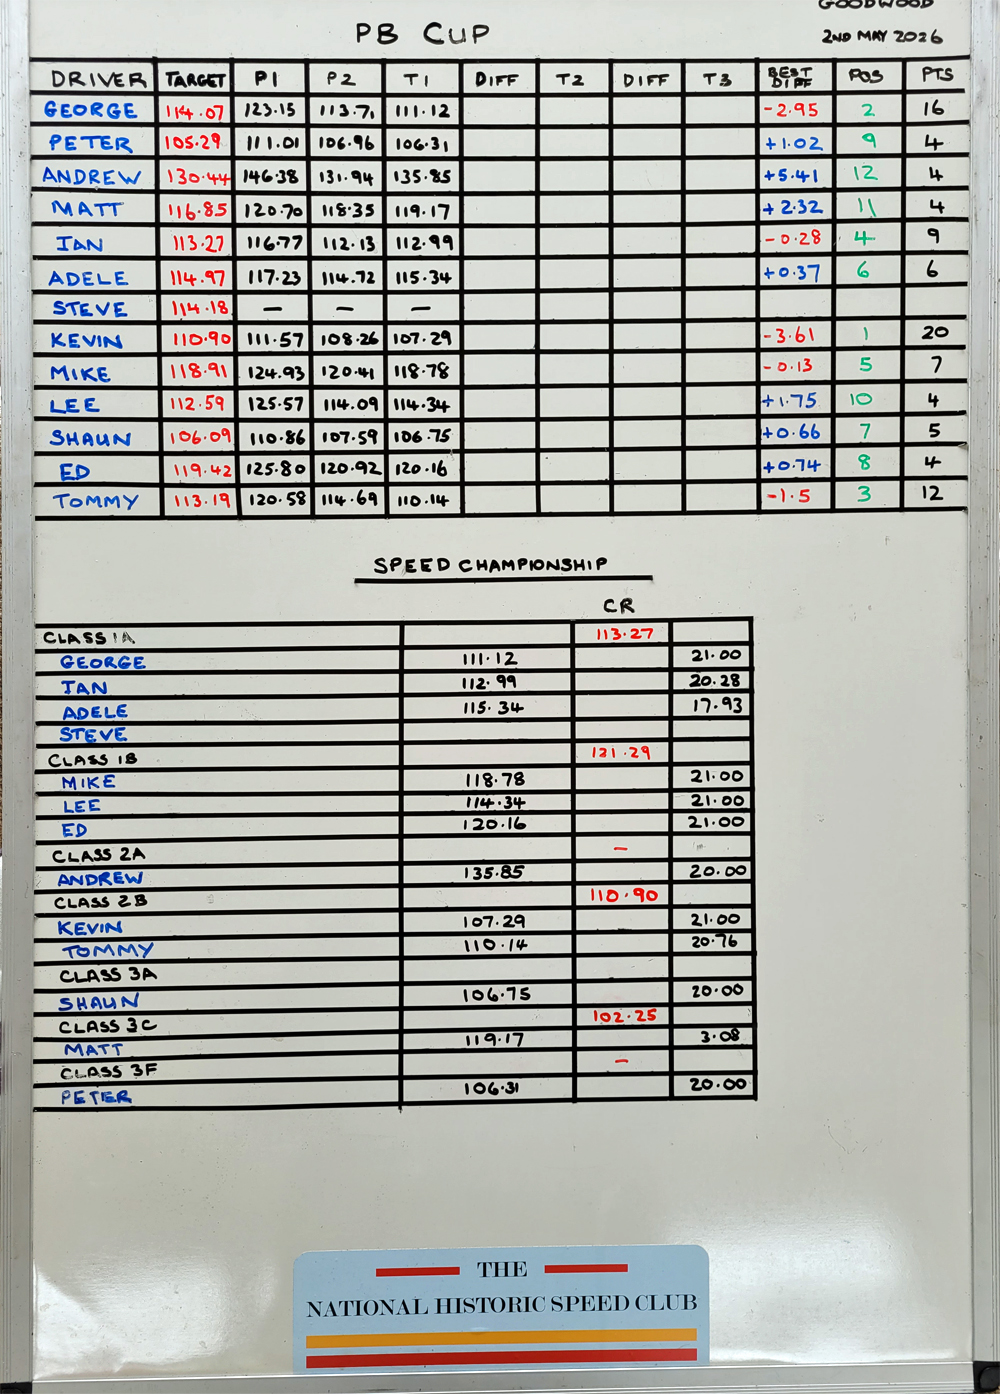 GOODWOOD
PB CUP
2ND MAY 2026
DRIVER TARGET P1 P2 T1 DIFF T2 DIFF T3 BEST DIFF POS PTS
GEORGE 114.07 123.15 113.71 111.12 -2.95 2 16
PETER 105.29 111.01 106.96 106.31 +1.02 9 4
ANDREW 130.44 146.38 131.94 135.85 +5.41 12 4
MATT 116.85 120.70 118.35 119.17 +2.32 11 4
IAN 113.27 116.77 112.13 112.99 -0.28 4 9
ADELE 114.97 117.23 114.72 115.34 +0.37 6 6
STEVE 114.18 - - -
KEVIN 110.90 111.57 108.26 107.29 -3.61 1 20
MIKE 118.91 124.93 120.41 118.78 -0.13 5 7
LEE 112.59 125.57 114.09 114.34 +1.75 10 4
SHAUN 106.09 110.86 107.59 106.75 +0.66 7 5
ED 119.42 125.80 120.92 120.16 +0.74 8 4
TOMMY 113.19 120.58 114.69 110.14 -1.5 3 12
SPEED CHAMPIONSHIP
CR
CLASS 1A 113.27
GEORGE 111.12 21.00
IAN 112.99 20.28
ADELE 115.34 17.93
STEVE
CLASS 1B 121.29
MIKE 118.78 21.00
LEE 114.34 21.00
ED 120.16 21.00
CLASS 2A - -
ANDREW 135.85 20.00
CLASS 2B 110.90
KEVIN 107.29 21.00
TOMMY 110.14 20.76
CLASS 3A
SHAUN 106.75 20.00
CLASS 3C 102.25
MATT 119.17 3.08
CLASS 3F -
PETER 106.31 20.00
THE
NATIONAL HISTORIC SPEED CLUB